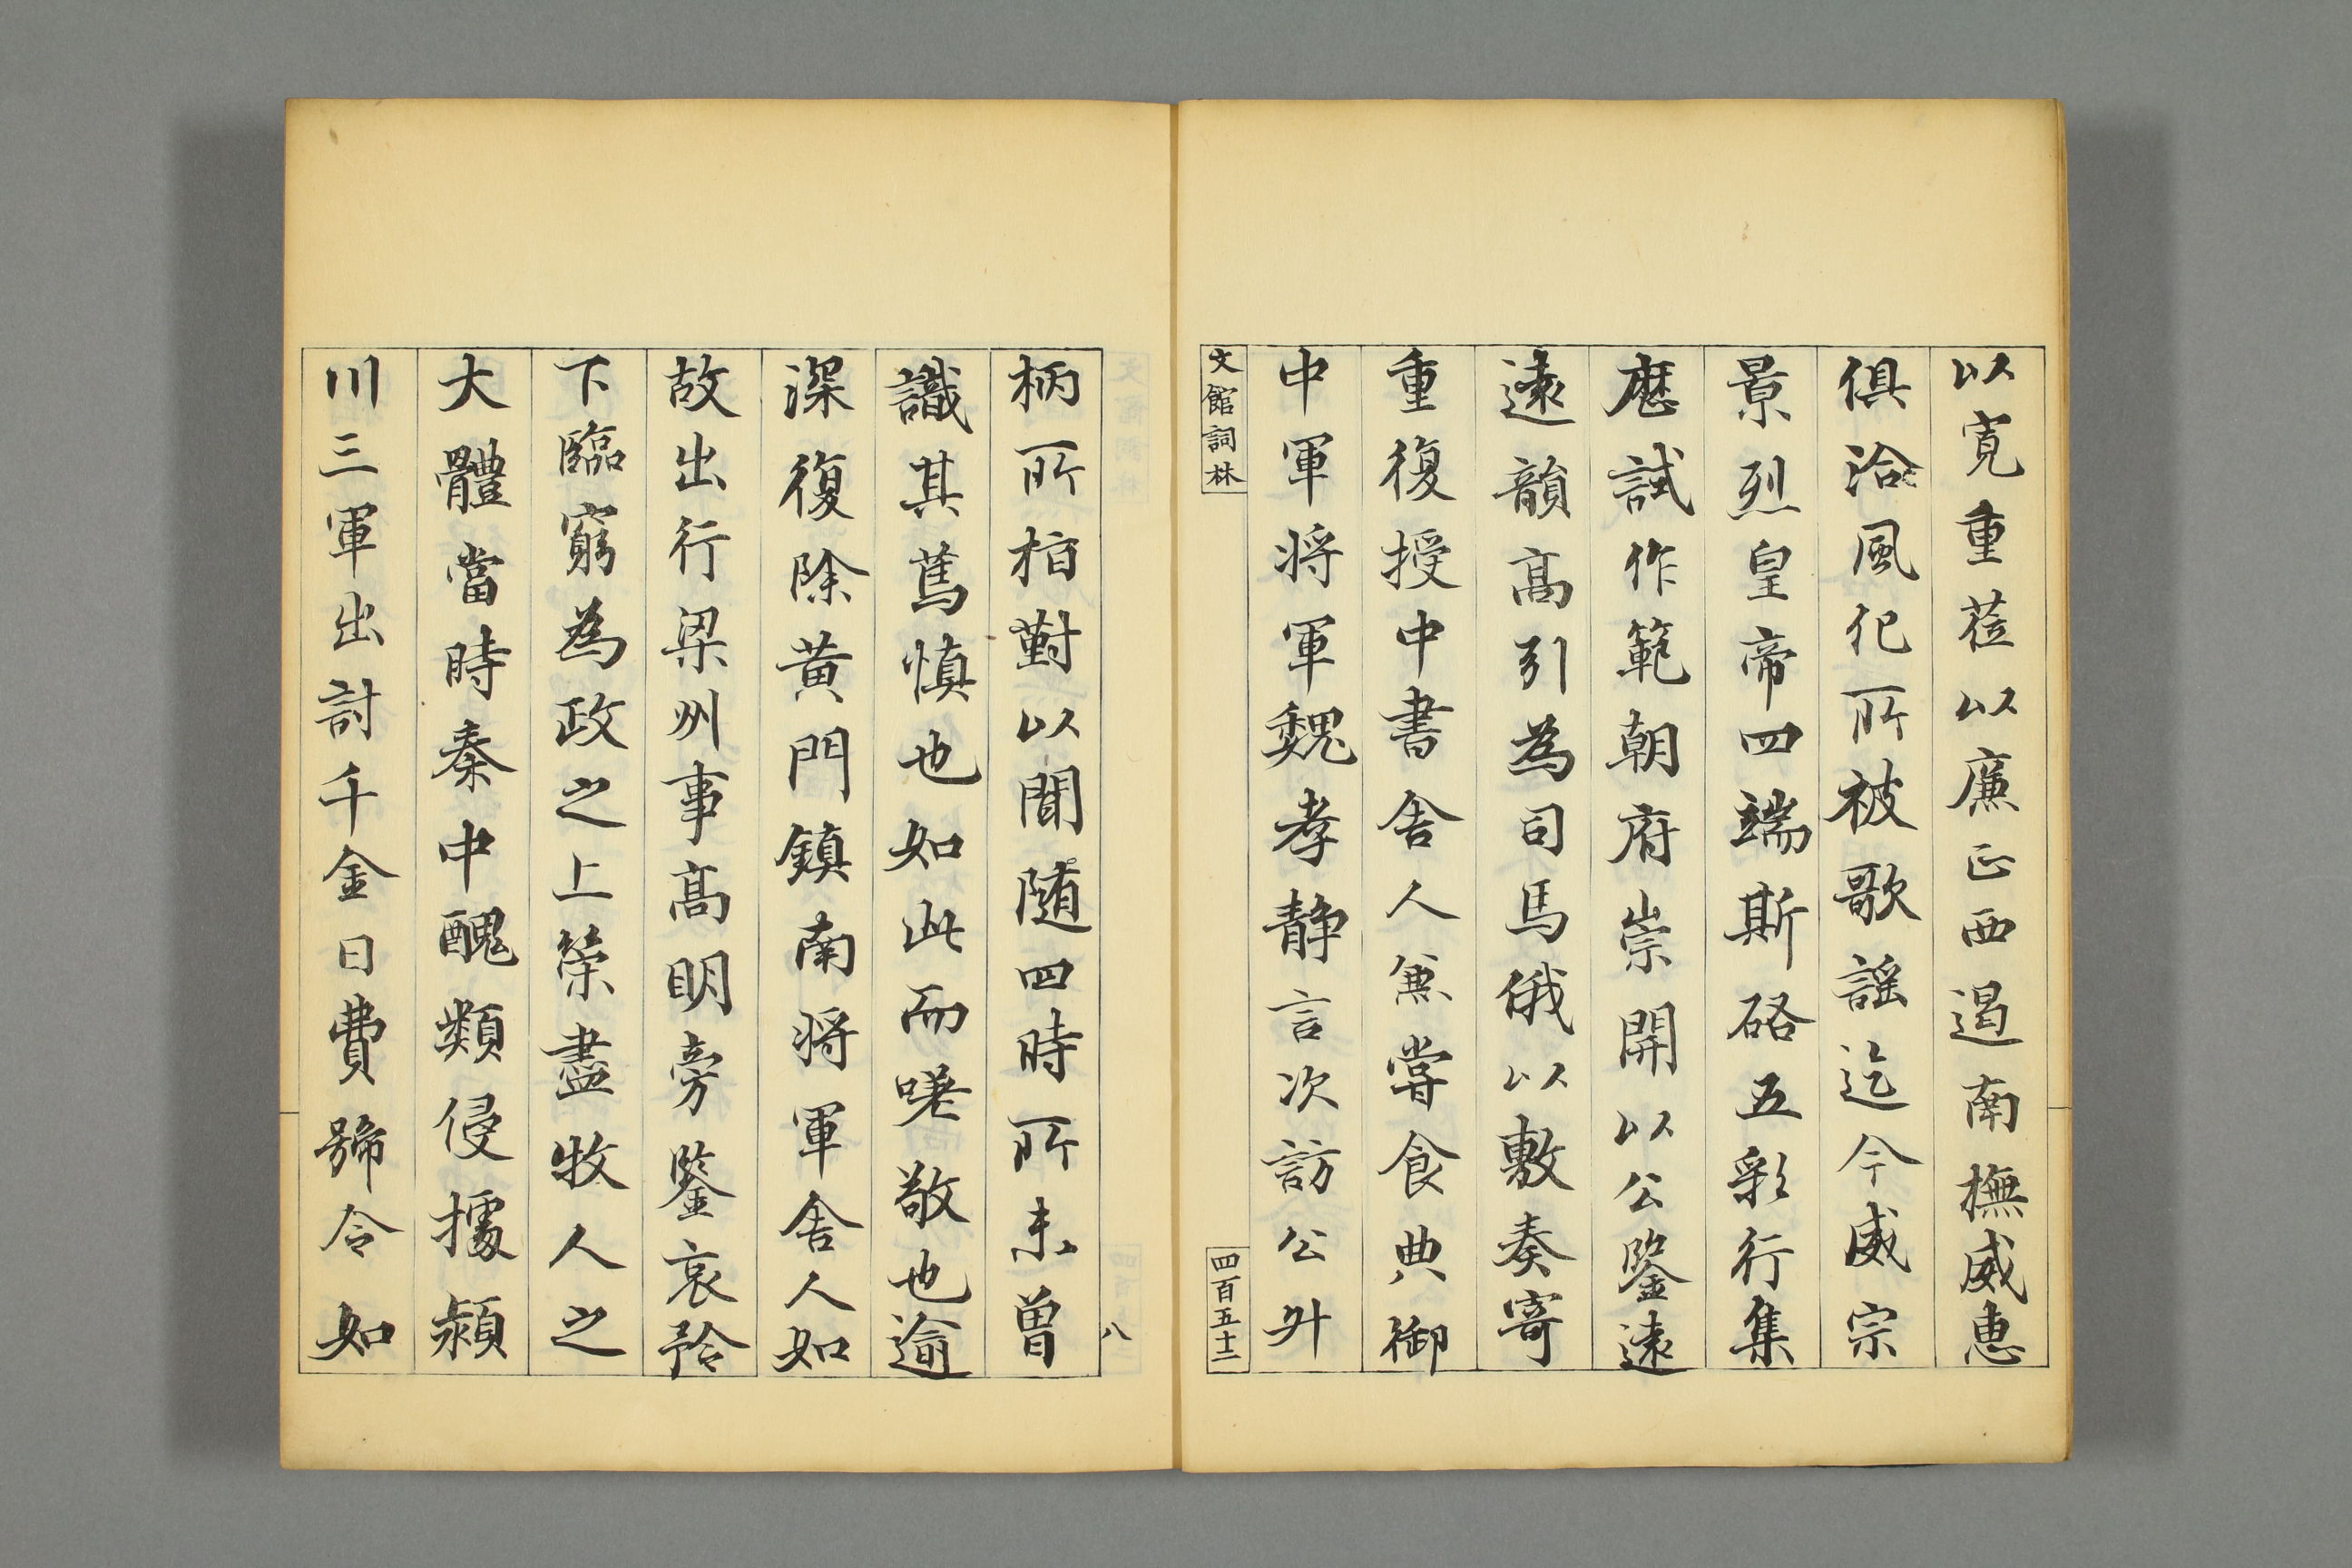 以寛重莅以廉正西遏南撫威恵
俱洽風化所被歌謡迄今威宗
景烈皇帝四端斯硌五彩行集
歴試作範朝府崇開以公鑒遠
遠韻高引為司馬俄以敷奏寄
重復授中書舎人兼嘗食典御
中軍将軍魏孝静言次訪公外
文館詞林
四百五十二
八
柄所栢對以聞随四時所未曽
識其蔦慎也如此而嗟敬也逾
深復除黄門鎮南将軍舎人如
故出行梁州事高明旁鑒哀矜
下臨窮為政之上策盡牧人之
大體當時秦中醜類侵擾潁
川三軍出討千金日費號令如